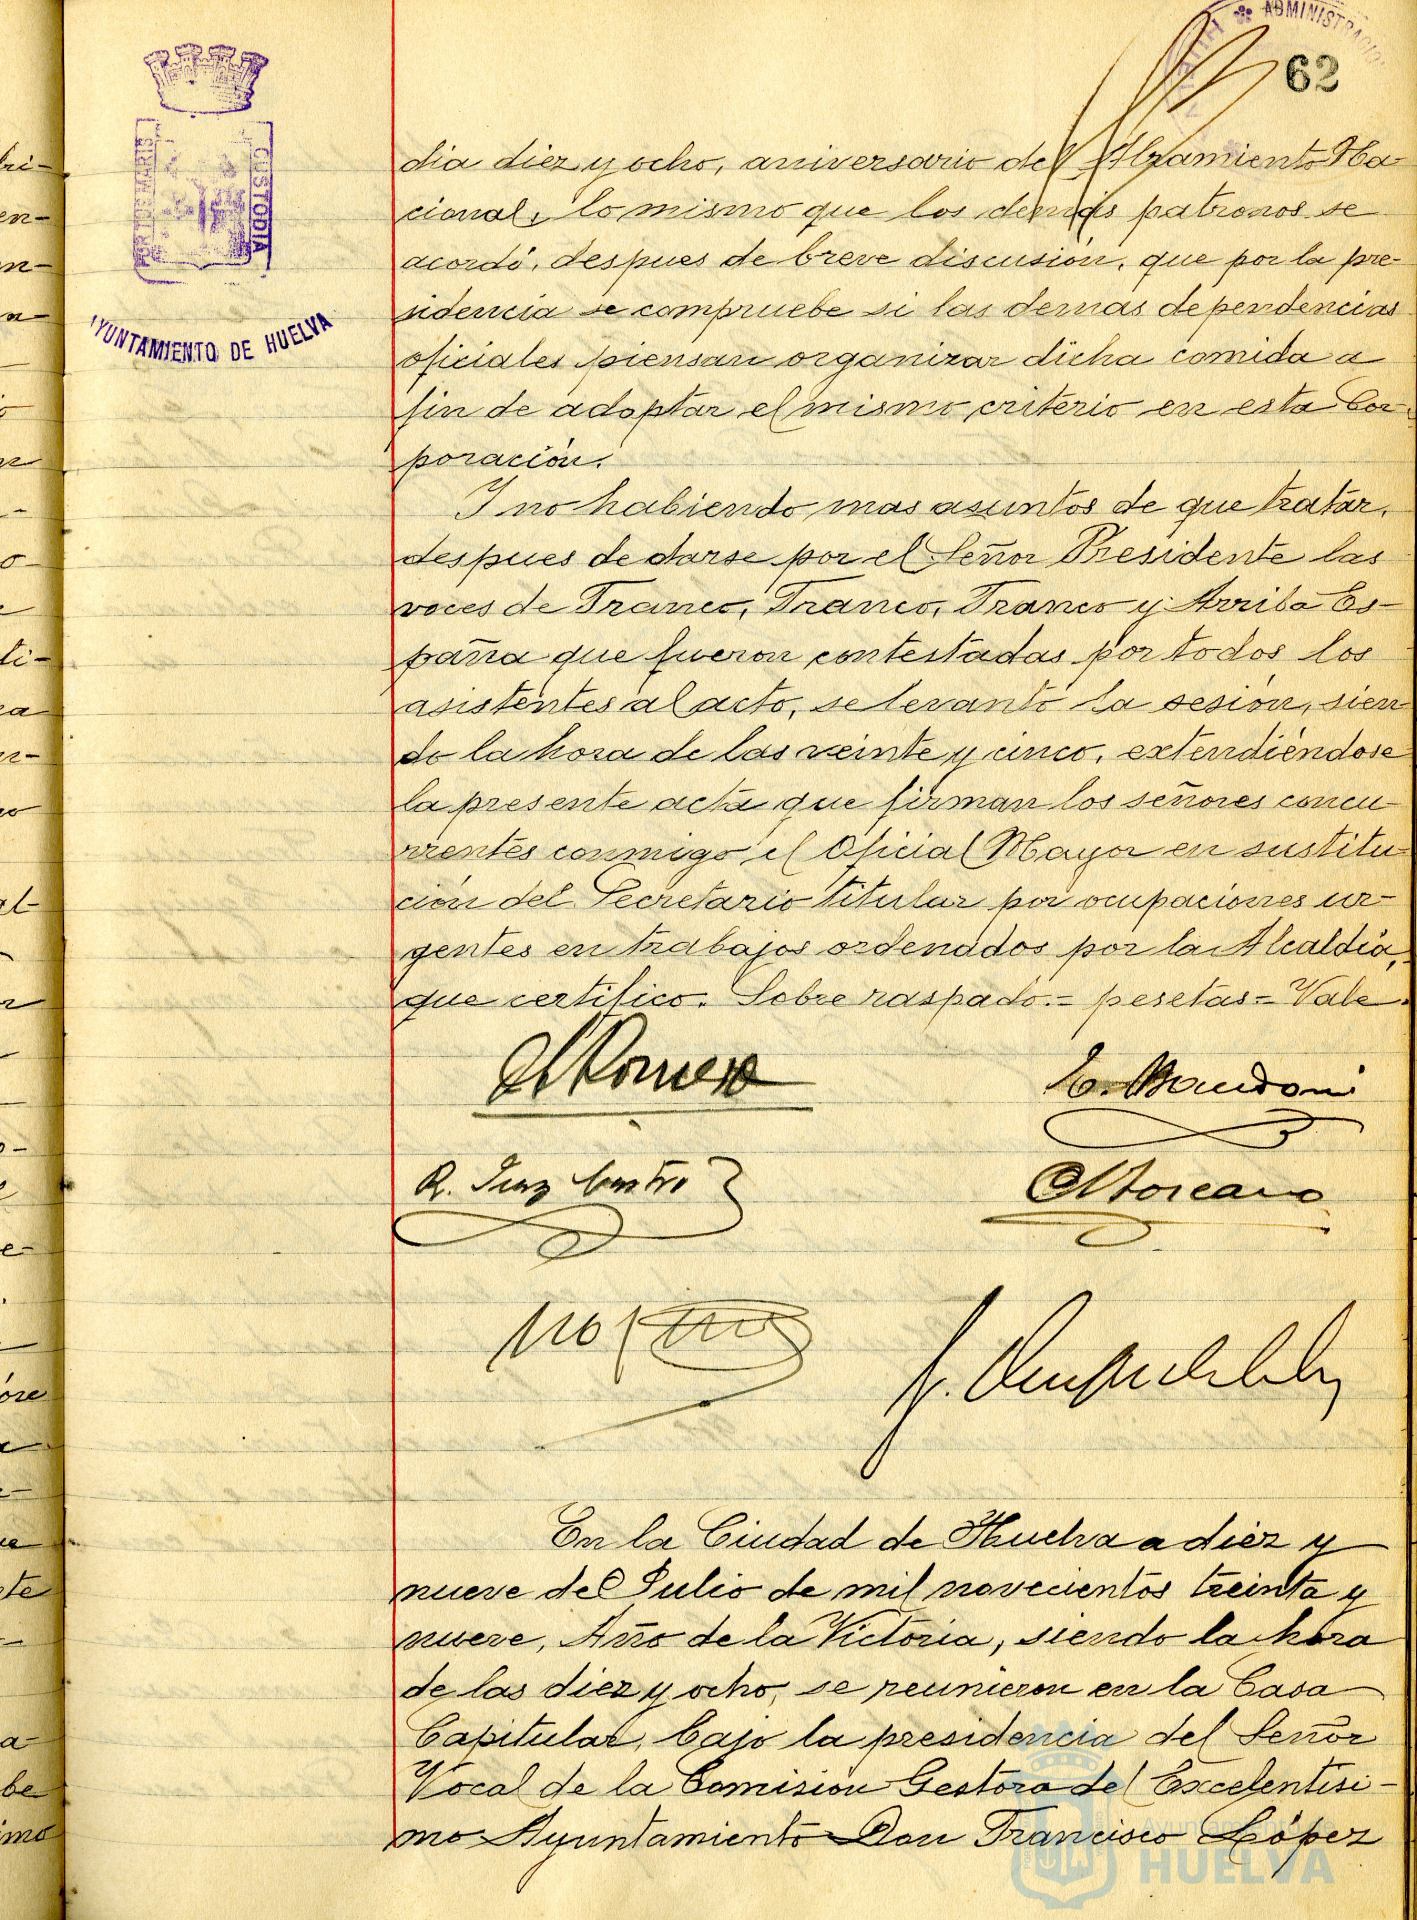 ADMINISTRACIO
HUELVA
62
PORTUS MARIS
CUSTODIA
AYUNTAMIENTO DE HUELVA
dia diez y ocho, aniversario del Alzamiento Na-
cional, lo mismo que los demás patronos se
acordó, despues de breve discusión, que por la pre-
sidencia se compruebe si las demas dependencias
oficiales piensan organizar dicha comida a
fin de adoptar el mismo criterio en esta Cor-
poración.
Y no habiendo mas asuntos de que tratar,
despues de darse por el Señor Presidente las
voces de Franco, Franco, Franco y Arriba Es-
paña que fueron contestadas por todos los
asistentes al acto, se levantó la sesión, sien-
do la hora de las veinte y cinco, extendiéndose
la presente acta que firman los señores concu-
rrentes conmigo el Oficial Mayor en sustitu-
ción del Secretario titular por ocupaciones ur-
gentes en trabajos ordenados por la Alcaldía,
que certifico. Sobre raspado.= pesetas= Vale.
Romero
E. Mandoni
R. Diaz Castro
Toscano
En la Ciudad de Huelva a diez y
nueve de Julio de mil novecientos treinta y
nueve, Año de la Victoria, siendo la hora
de las diez y ocho, se reunieron en la Casa
Capitular, bajo la presidencia del Señor
Vocal de la Comision Gestora del Excelentisi-
mo Ayuntamiento Don Francisco López
Ayuntamiento de
HUELVA